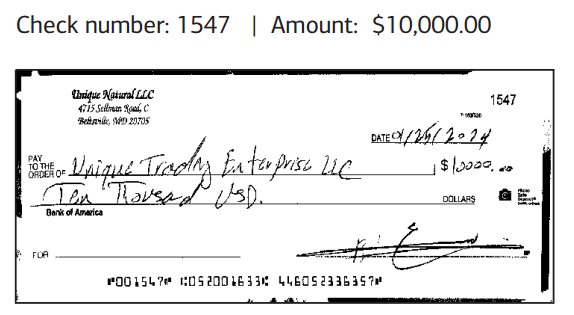 Check number: 1547 | Amount: $10,000.00
Unique Natural LLC
4715 Sellman Road, C
Beltsville, MD 20705
1547
DATE 01/25/2024
PAY TO THE ORDER OF Unique Trading Enterprise LLC $10000.00
Ten Thousand USD. DOLLARS
Bank of America
FOR
⑈001547⑈ ⑆052001633⑆ 446052336357⑈